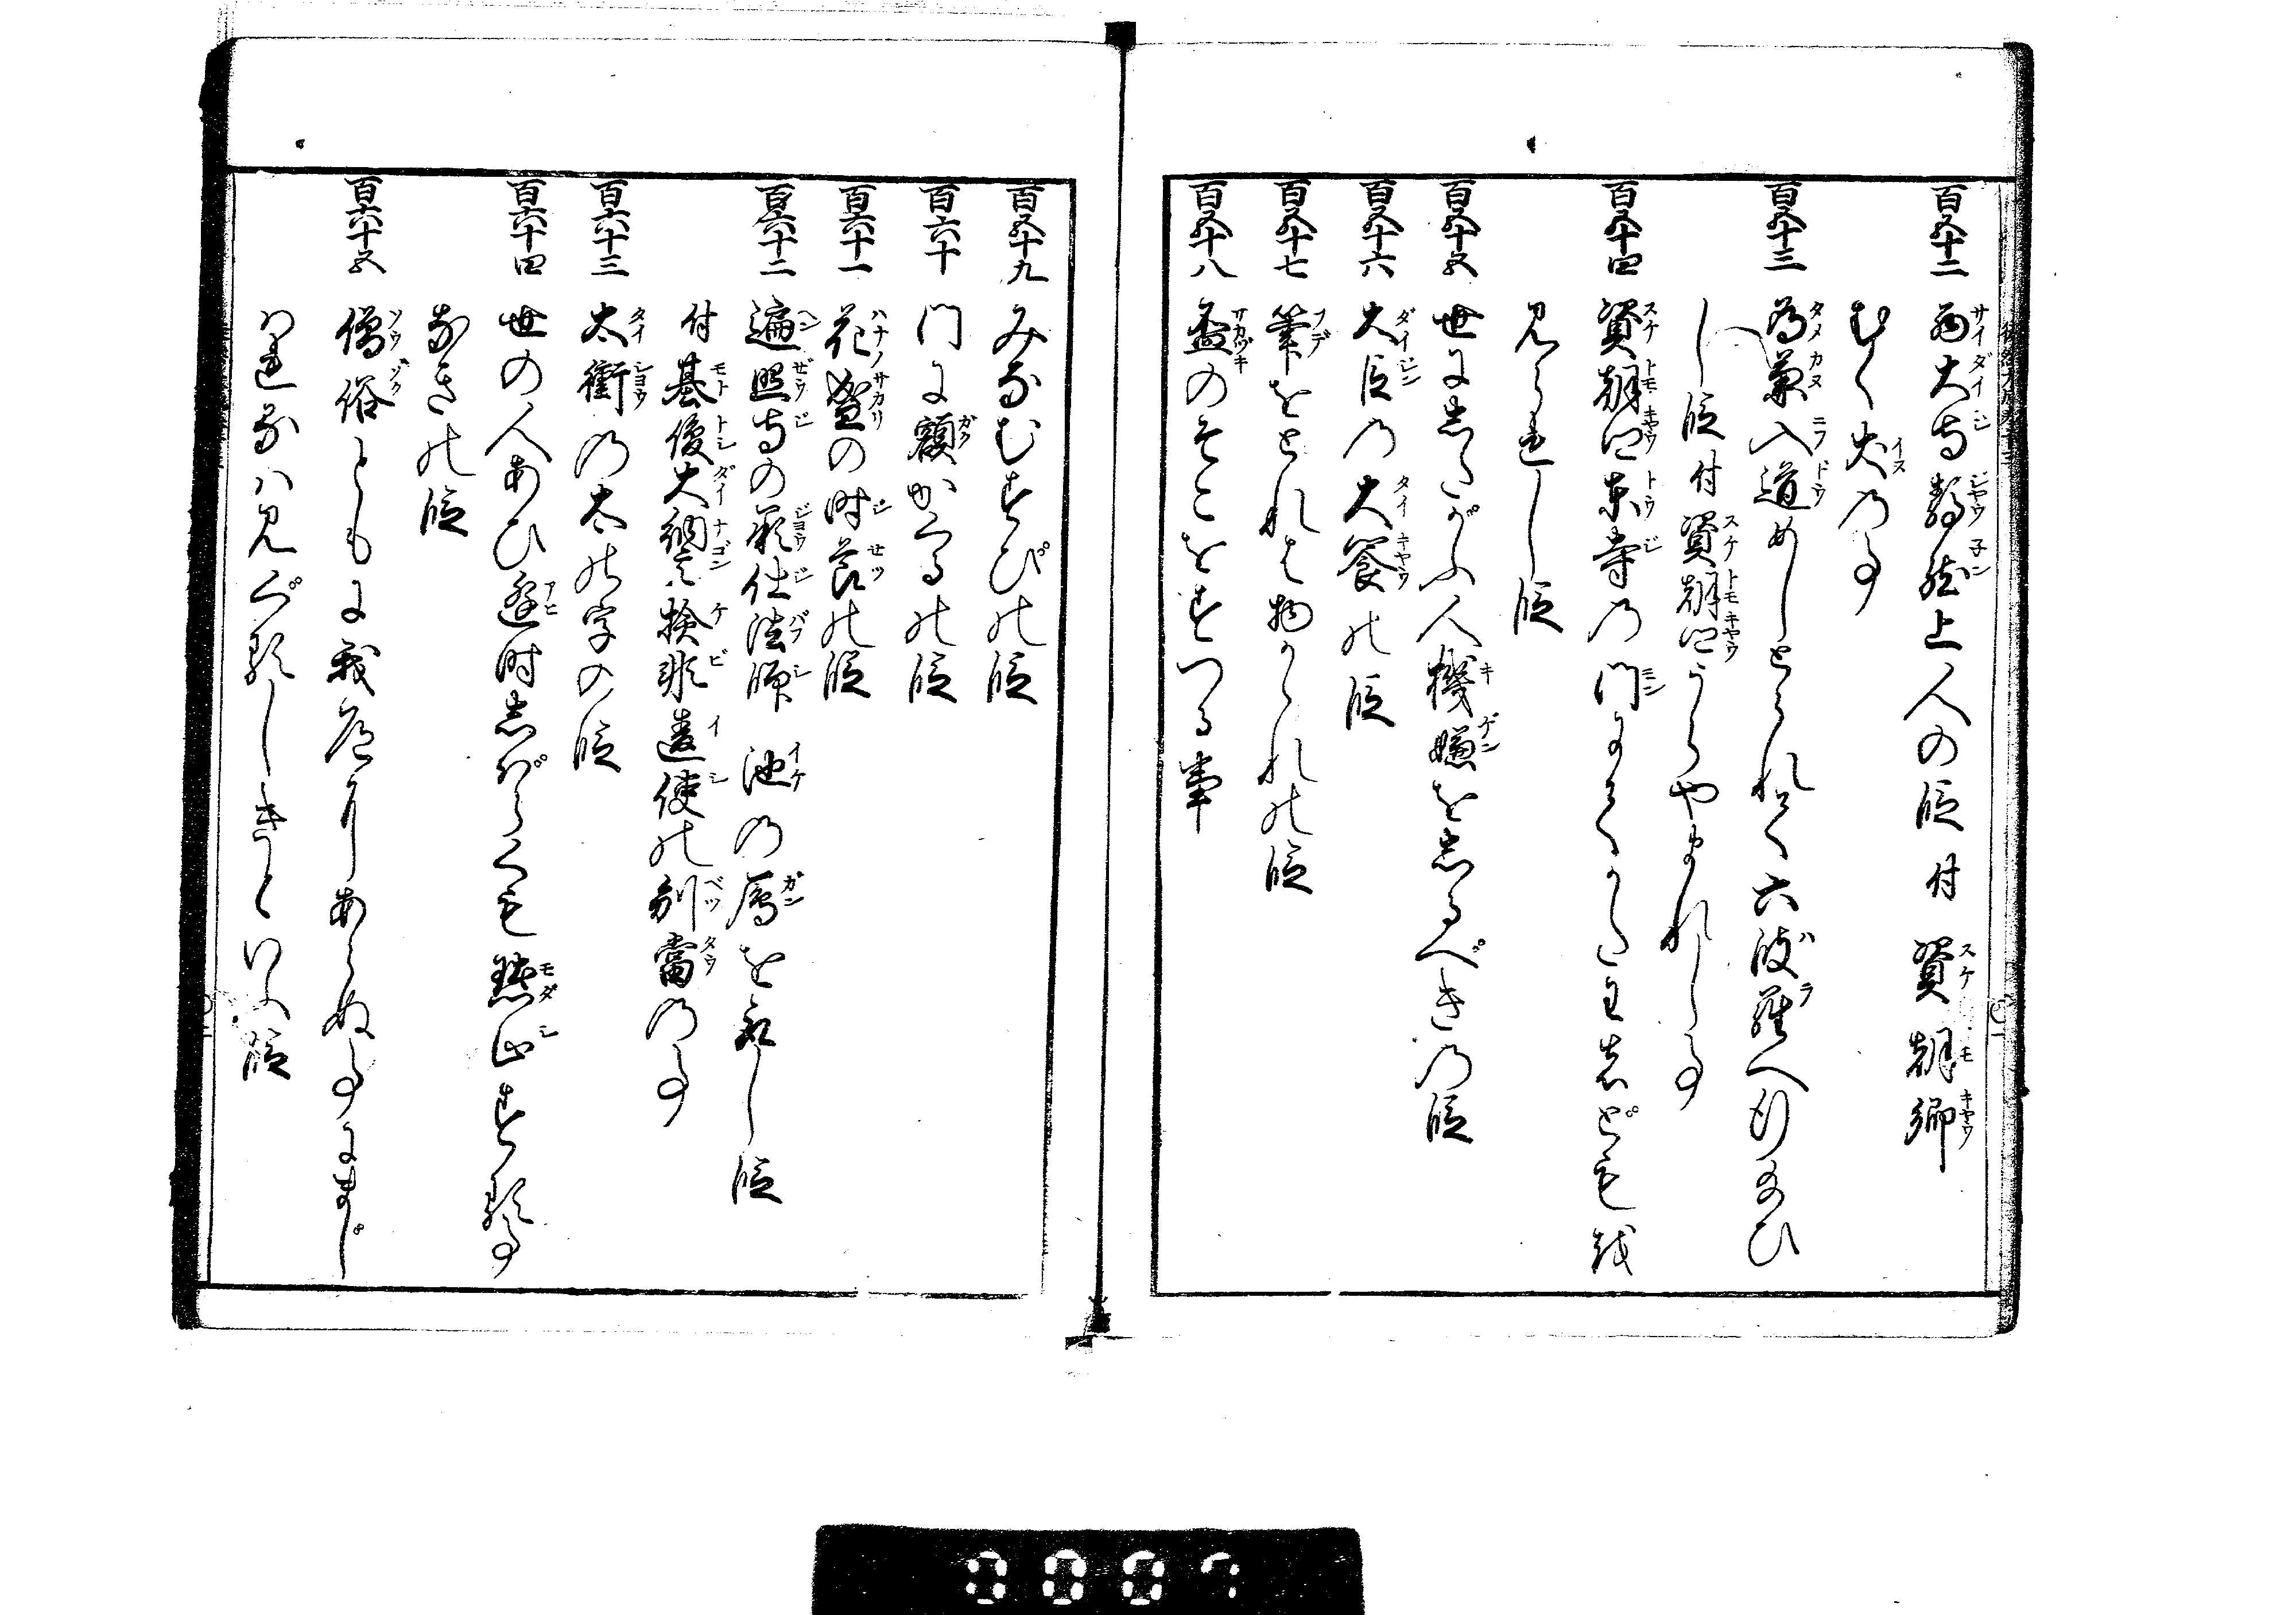 百五十二 西大寺靜然上人の段 付 資朝卿
むく犬の事
百五十三 為兼入道めしとられて六波羅へ行給ひ
し段 付 資朝卿うらやまれし事
百五十四 資朝卿東寺の門にてかたわ者ども を
見られし段
百五十五 世にしたがふ人機嫌をしるべきの段
百五十六 大臣の大饗の段
百五十七 筆をとれば物かゝれの段
百五十八 盃のそこをすつる事
百五十九 みなむすびの段
百六十 門に額かくるの段
百六十一 花盛の時節の段
百六十二 遍照寺の承仕法師 池の鳥を殺し段
付 基俊大納言検非違使の別當の事
百六十三 太衝の太の字の段
百六十四 世の人あひ逢時しばらくも黙止する事
なきの段
百六十五 僧俗ともに我道にあらぬ事にまじ
はれるは見ぐるしきといふ段
0007